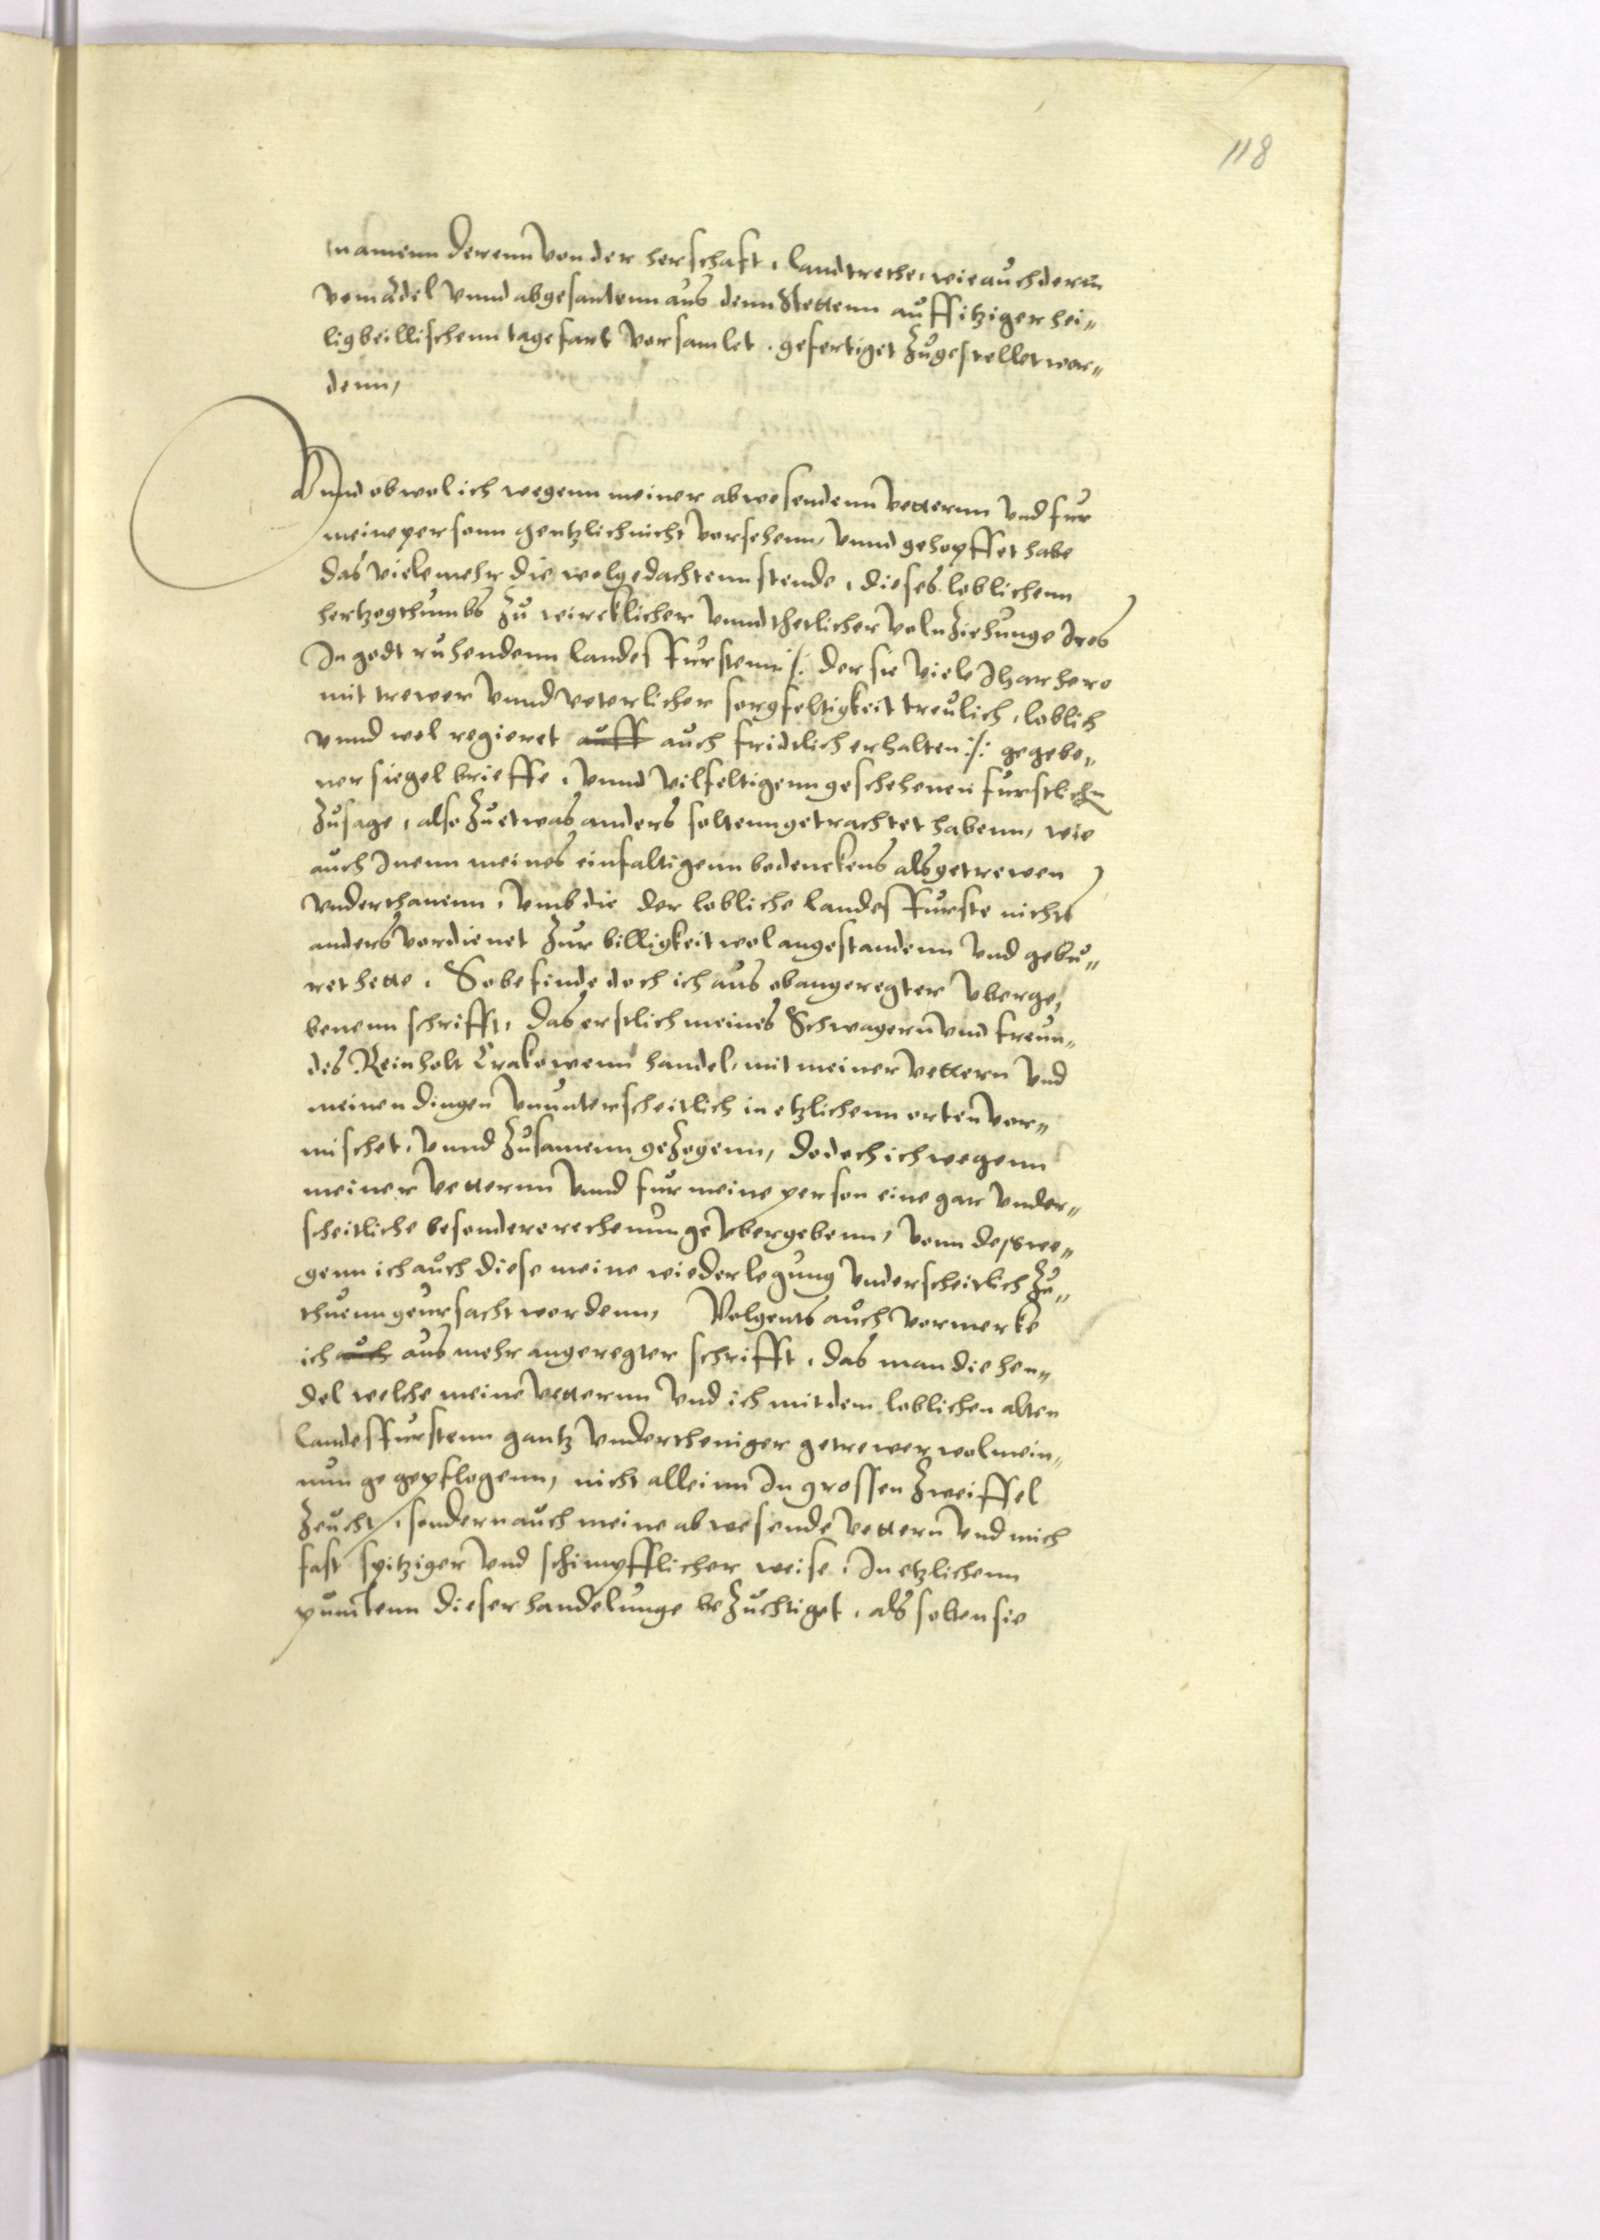 118
namenn derenn von der herschaft, landtrethe, wie auch deren
vom adel vnnd abgesantenn aus denn Stettenn auff itziger hei„
ligbeillischenn tagefart versamlet, gefertiget zugestellet wor„
denn,
Vnnd obwol ich wegenn meiner abwesendenn vetternn vnd fur
meine personn gentzlich nicht versehenn, vnnd gehopffet habe
das viele mehr die wolgedachtenn stende, dieses loblichenn
hertzogthumbs zu wircklicher vnnd thetlicher volnziehunge Ires
In godt ruhendenn landesfurstenn :/: der sie viele Ihar hero
mit trewer vnnd veterlicher sorgfeltigkeit treulich, loblich
vnnd wol regieret auff auch fridtlich erhalten :/: gegebe„
ner siegel brieffe, vnnd vilfeltigenn geschehenen furstlichn
zusage, also zu etwas anders soltenn getrachtet habenn, wie
auch Inenn meines einfaltigenn bedenckens als getrewen
vnderthanenn, vmb die der lobliche landesfurste nichts
anders verdienet zur billigkeit wol angestandenn vnd gebu„
ret hette. So befinde doch ich aus obangeregter vberge„
benenn schrifft, das erstlich meines Schwagern vnd freun„
des Reinholt Crakowenn handel, mit meiner vettern vnd
meinen dingen vnunterscheitlich in etzlichenn orten vor„
mischet, vnnd zusamenn gezogenn, dodoch ich wegenn
meiner vetternn vnnd fur meine person eine gar vnder„
scheitliche besondere rechenunge vbergebenn, vonn deswe„
genn ich auch diese meine wiederlegung vnderscheitlich zu„
thuenn geursacht wordenn, Volgents auch vermerke
ich auch aus mehr angeregter schrifft, das man die hen„
del welche meine vetternn vnd ich mit dem loblichen alten
landesfurstenn gantz vndertheniger getrewer wolmein„
nunge gepflogenn, nicht allein In grossen zweiffel
zeucht, sondern auch meine abwesende vettern vnd mich
fast spitziger vnd schimpfflicher weise, In etzlichenn
puncten dieser handelunge bezuchtiget, als solten sie